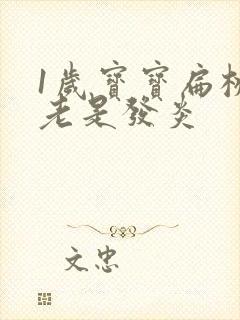 1歲寶寶扁桃
老是發炎
文忠